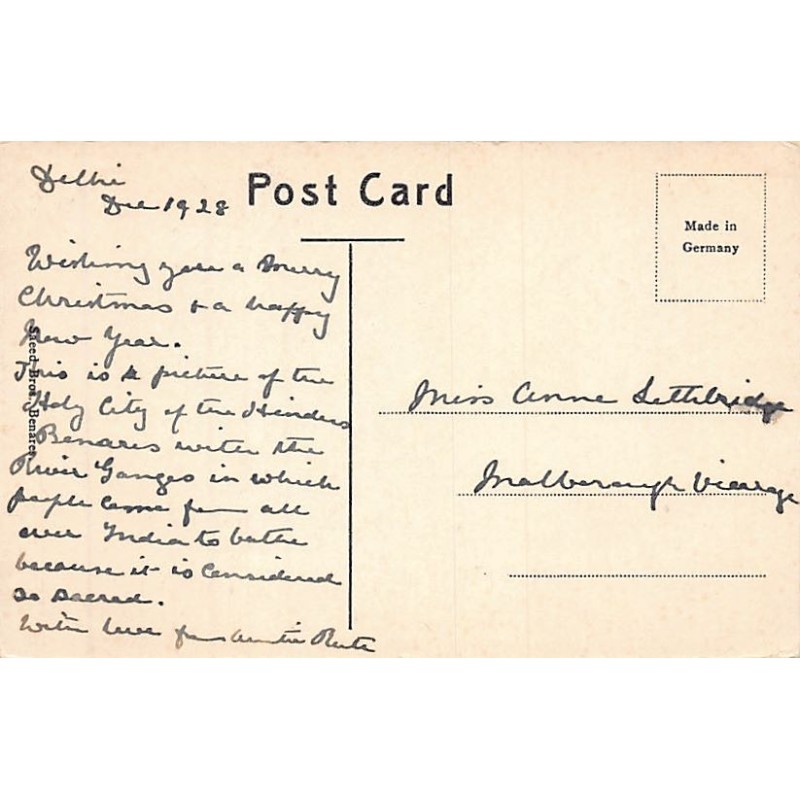 Delhi
Dec 1928
Post Card
Made in
Germany
Wishing you a Merry
Christmas & a happy
New Year.
This is a picture of the
Holy City of the Hindus
Benares with the
River Ganges in which
people come from all
over India to bathe
because it is considered
so sacred.
With love from Auntie Ruth
Saeed Bros. Benares
Miss Anne Lethbridge
Malborough Vicarage